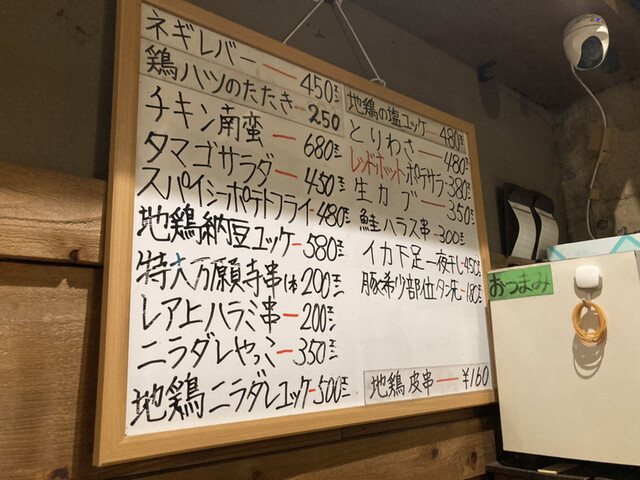 ネギレバー ー 450円
鶏ハツのたたき ー 250
チキン南蛮 ー 680円
タマゴサラダー 450円
スパイシーポテトフライー480円
地鶏納豆ユッケー580円
特大万願寺串(1本)200円
レア上ハラミ串ー200円
ニラダレやっこー350円
地鶏ニラダレユッケー500円
地鶏の塩ユッケー480円
とりわさー480円
レッドホットポテサラー380円
生カブー350円
鮭ハラス串ー300円
イカ下足一夜干しー450円
豚希少部位タン先ー180円
地鶏皮串ー¥160
おつまみ